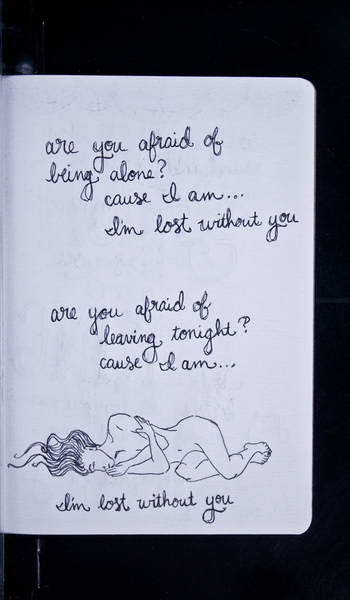 are you afraid of
being alone?
cause I am...
I'm lost without you
are you afraid of
leaving tonight?
cause I am...
I'm lost without you